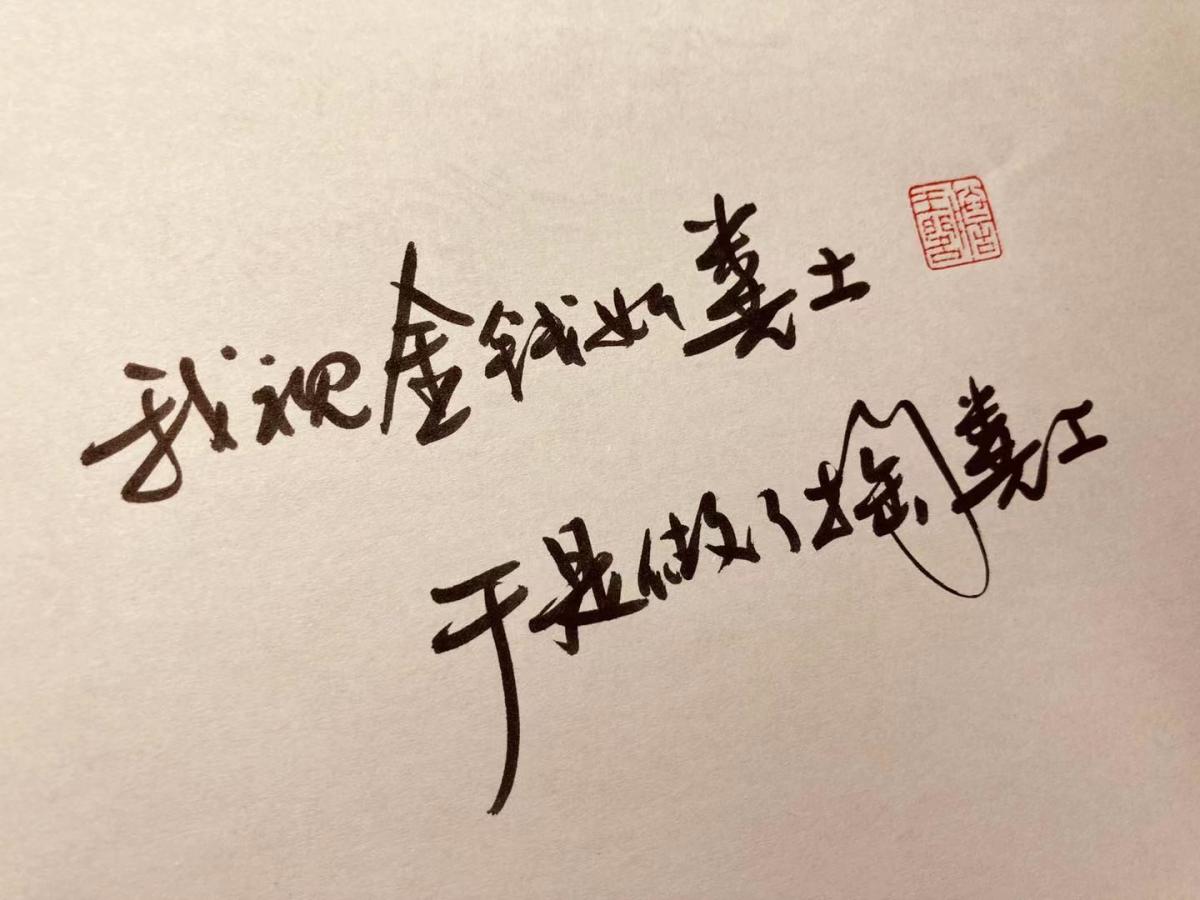 我视金钱如粪土
于是做了掏粪工